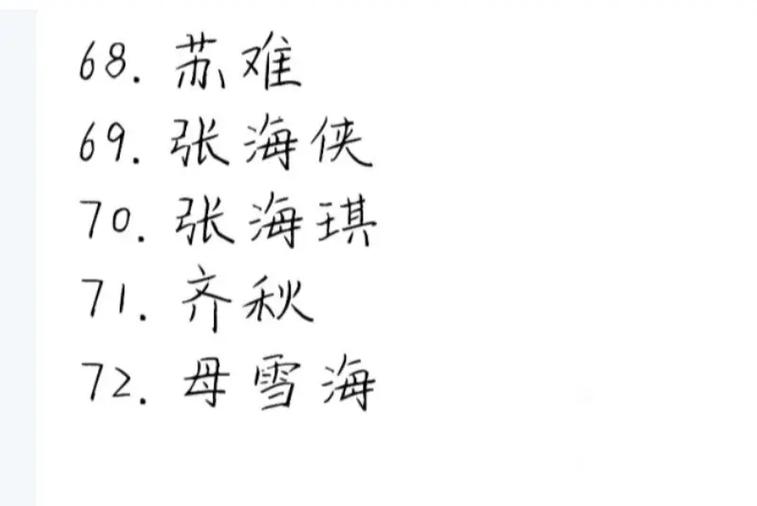 68. 苏难
69. 张海侠
70. 张海琪
71. 齐秋
72. 母雪海